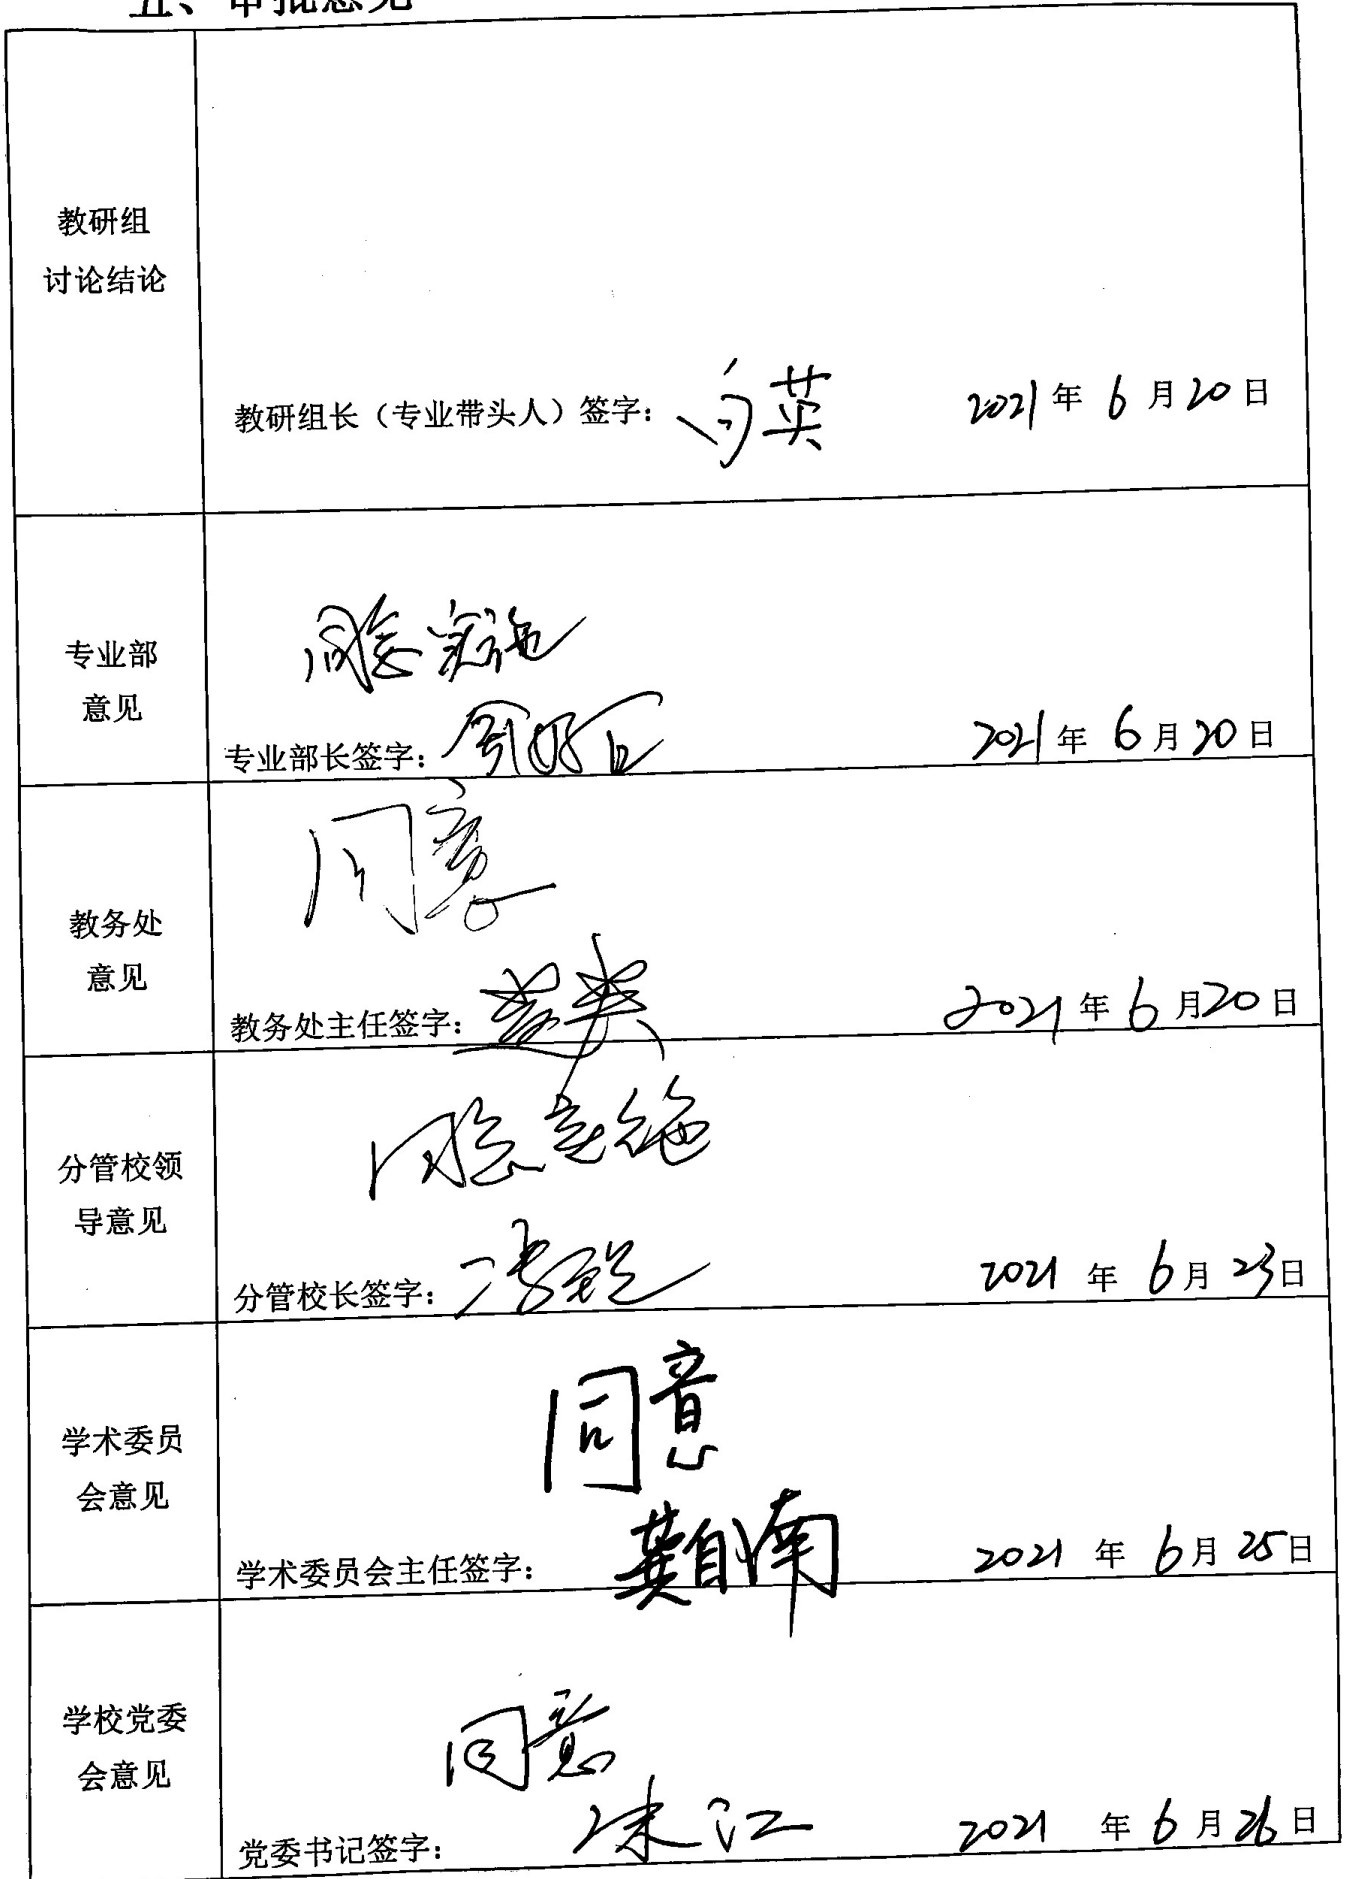 五、审批意见
教研组
讨论结论
教研组长（专业带头人）签字： 白英 2021年 6 月 20 日
同意实施
专业部
意见
专业部长签字： 2021年 6 月 20 日
同意
教务处
意见
教务处主任签字： 2021年 6 月 20 日
同意实施
分管校领
导意见
分管校长签字： 2021 年 6 月 23 日
同意
学术委员
会意见
学术委员会主任签字： 龚自南 2021 年 6 月 25 日
同意
学校党委
会意见
党委书记签字： 2021 年 6 月 26 日